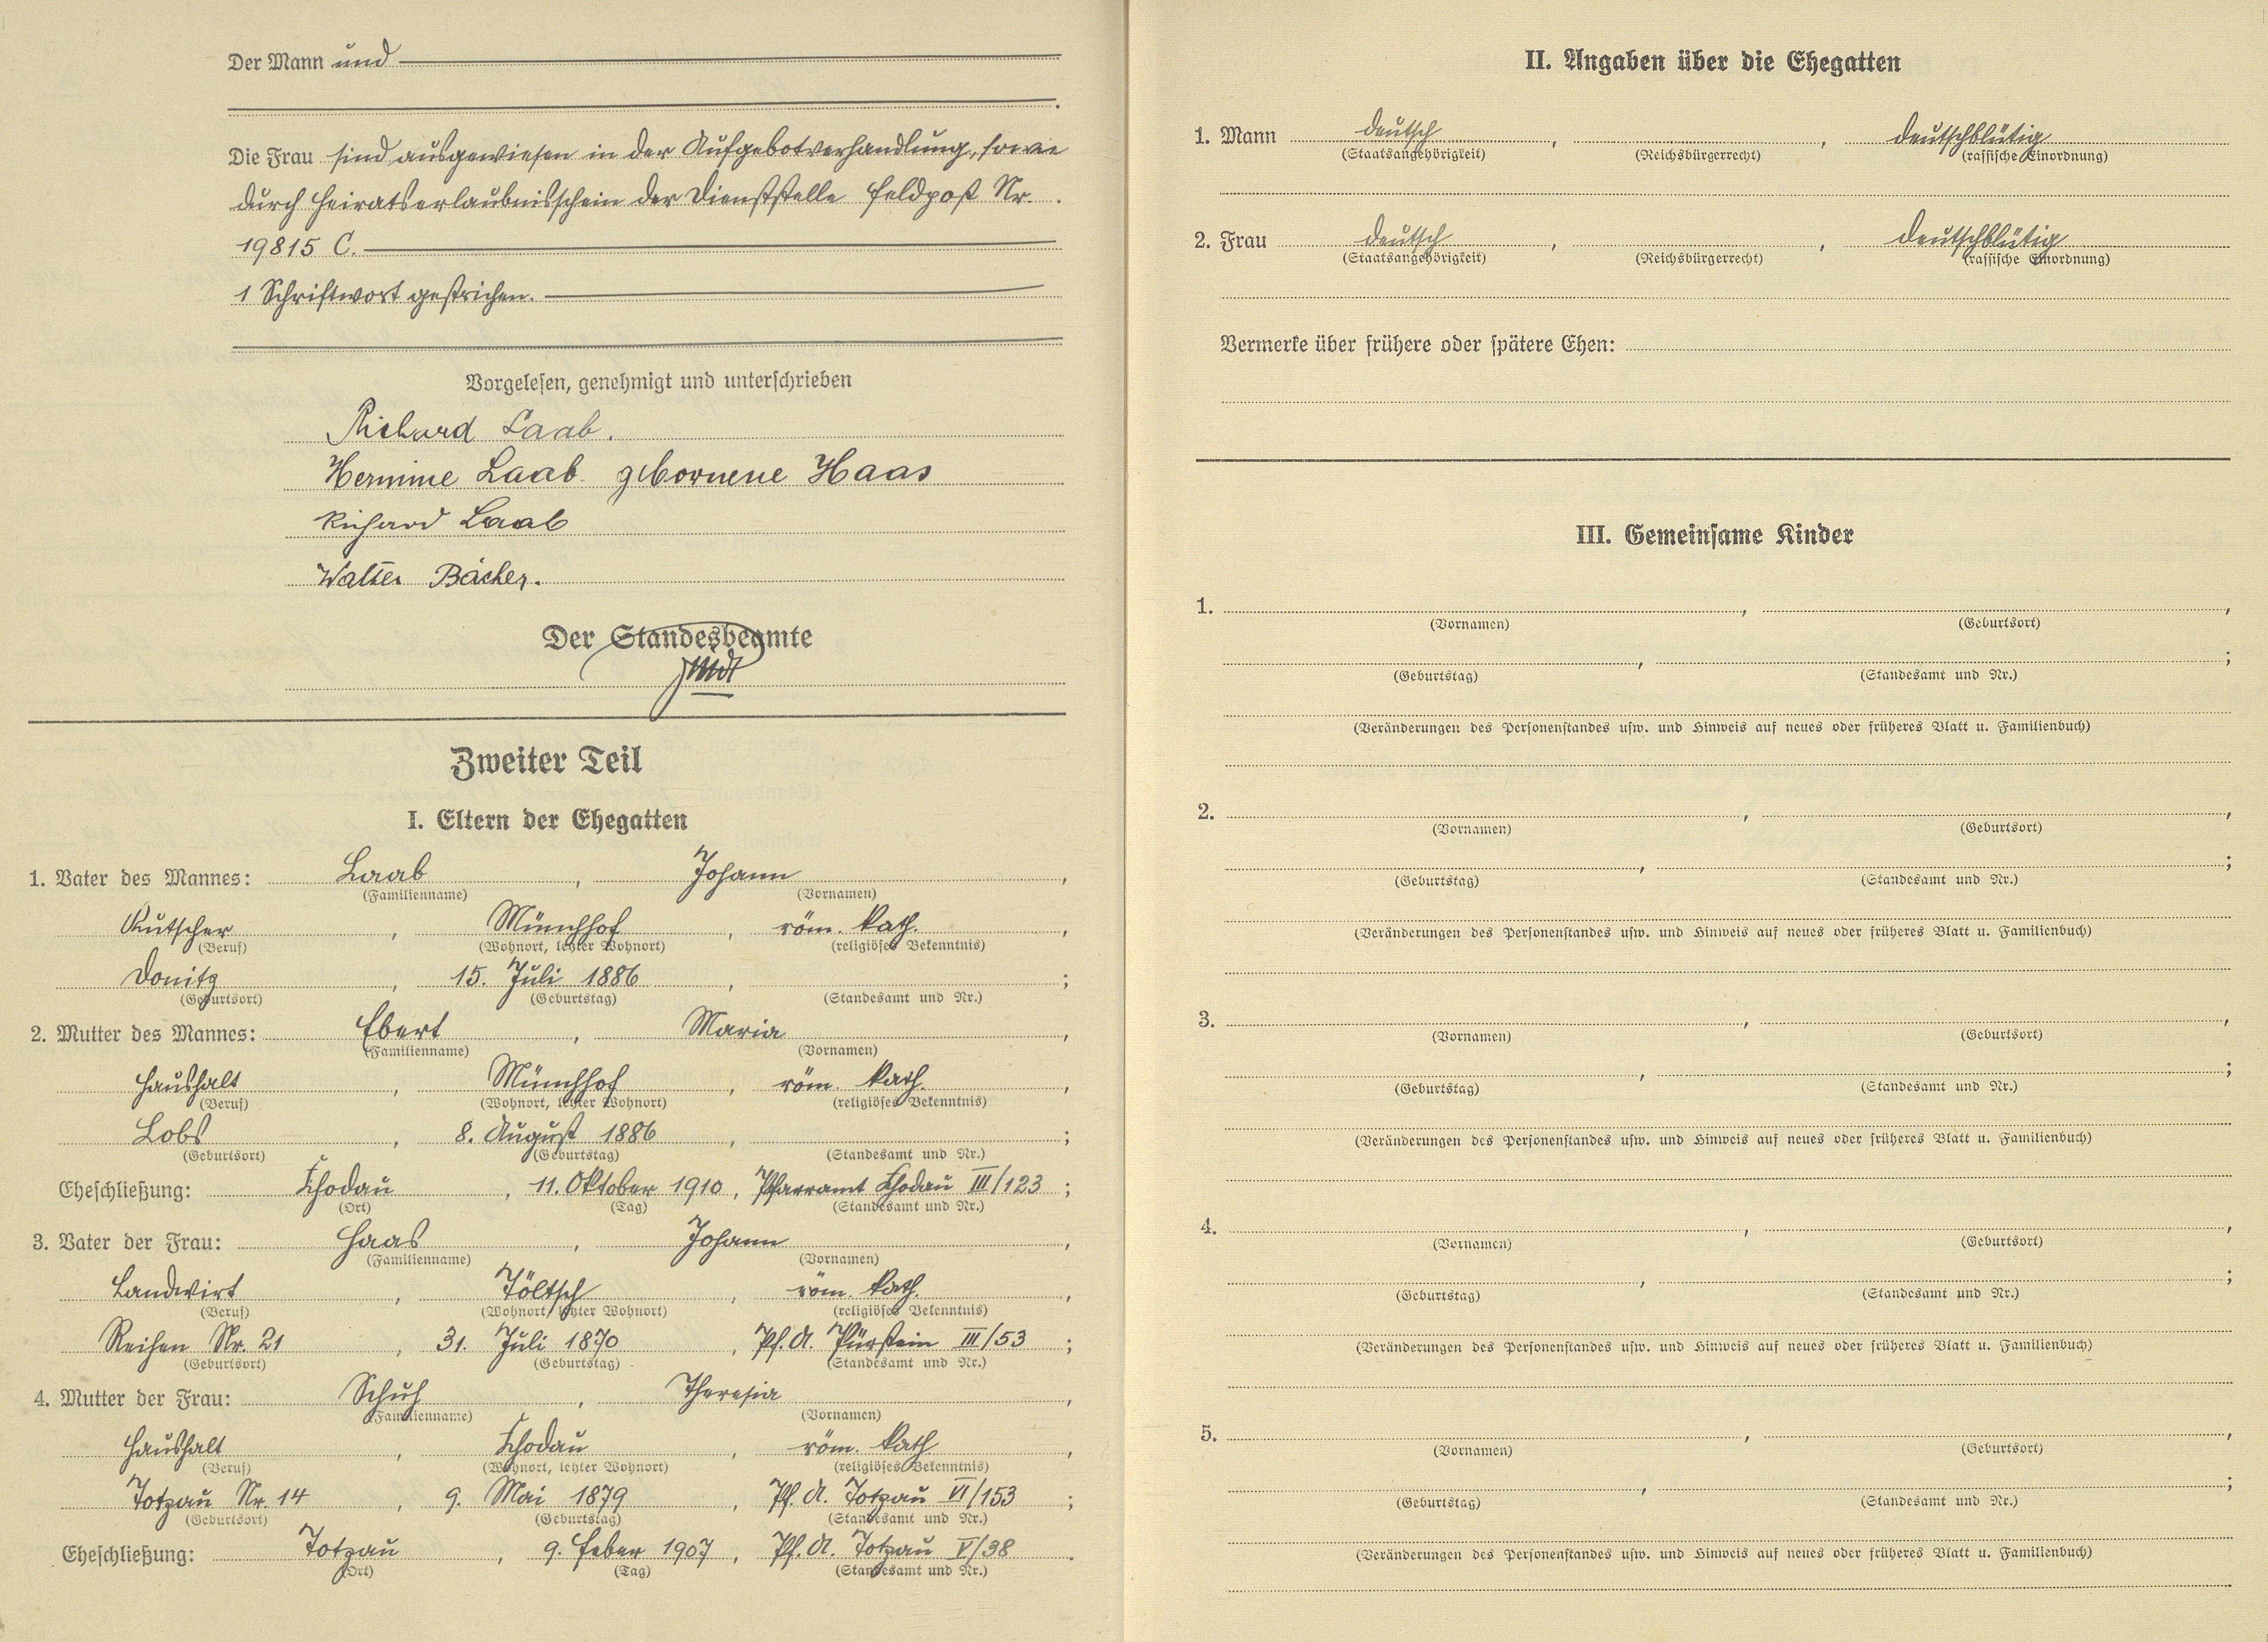 Der Mann und
Die Frau sind ausgewiesen in der Aufgebotverhandlung, sowie
durch Heiratserlaubnisschein der Dienststelle Feldpost Nr.
19815 C.
1 Schriftwort gestrichen.
Vorgelesen, genehmigt und unterschrieben
Richard Laab.
Hermine Laab gebornene Haas
Richard Laab
Walter Bächer.
Der Standesbeamte
Zweiter Teil
I. Eltern der Ehegatten
1. Vater des Mannes: Laab, Johann,
(Familienname) (Vornamen)
Kutscher, Münchhof, röm. kath.,
(Beruf) (Wohnort, letzter Wohnort) (religiöses Bekenntnis)
Donitz, 15. Juli 1886, ;
(Geburtsort) (Geburtstag) (Standesamt und Nr.)
2. Mutter des Mannes: Ebert, Maria,
(Familienname) (Vornamen)
Haushalt, Münchhof, röm. kath.,
(Beruf) (Wohnort, letzter Wohnort) (religiöses Bekenntnis)
Lobs, 8. August 1886, ;
(Geburtsort) (Geburtstag) (Standesamt und Nr.)
Eheschließung: Chodau, 11. Oktober 1910, Pfarramt Chodau III/123;
(Ort) (Tag) (Standesamt und Nr.)
3. Vater der Frau: Haas, Johann,
(Familienname) (Vornamen)
Landwirt, Töltsch, röm. kath.,
(Beruf) (Wohnort, letzter Wohnort) (religiöses Bekenntnis)
Reihen Nr. 21, 31. Juli 1870, Pf. A. Pürstein III/53;
(Geburtsort) (Geburtstag) (Standesamt und Nr.)
4. Mutter der Frau: Schuh, Theresia,
(Familienname) (Vornamen)
Haushalt, Chodau, röm. kath,
(Beruf) (Wohnort, letzter Wohnort) (religiöses Bekenntnis)
Totzau Nr. 14, 9. Mai 1879, Pf. A. Totzau VI/153;
(Geburtsort) (Geburtstag) (Standesamt und Nr.)
Eheschließung: Totzau, 9. Feber 1907, Pf. A. Totzau V/38.
(Ort) (Tag) (Standesamt und Nr.)
II. Angaben über die Ehegatten
1. Mann deutsch, , deutschblütig
(Staatsangehörigkeit) (Reichsbürgerrecht) (rassische Einordnung)
2. Frau deutsch, , deutschblütig
(Staatsangehörigkeit) (Reichsbürgerrecht) (rassische Einordnung)
Vermerke über frühere oder spätere Ehen:
III. Gemeinsame Kinder
1. , ,
(Vornamen) (Geburtsort)
, ;
(Geburtstag) (Standesamt und Nr.)
(Veränderungen des Personenstandes usw. und Hinweis auf neues oder früheres Blatt u. Familienbuch)
2. , ,
(Vornamen) (Geburtsort)
, ;
(Geburtstag) (Standesamt und Nr.)
(Veränderungen des Personenstandes usw. und Hinweis auf neues oder früheres Blatt u. Familienbuch)
3. , ,
(Vornamen) (Geburtsort)
, ;
(Geburtstag) (Standesamt und Nr.)
(Veränderungen des Personenstandes usw. und Hinweis auf neues oder früheres Blatt u. Familienbuch)
4. , ,
(Vornamen) (Geburtsort)
, ;
(Geburtstag) (Standesamt und Nr.)
(Veränderungen des Personenstandes usw. und Hinweis auf neues oder früheres Blatt u. Familienbuch)
5. , ,
(Vornamen) (Geburtsort)
, ;
(Geburtstag) (Standesamt und Nr.)
(Veränderungen des Personenstandes usw. und Hinweis auf neues oder früheres Blatt u. Familienbuch)